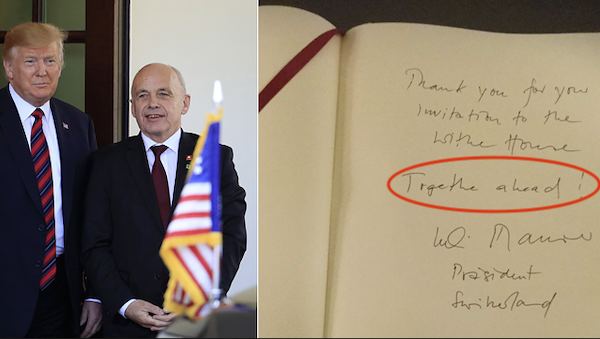 Thank you for your
invitation to the
Withe House
Togethe ahead !
Maurer
Präsident
Switzerland